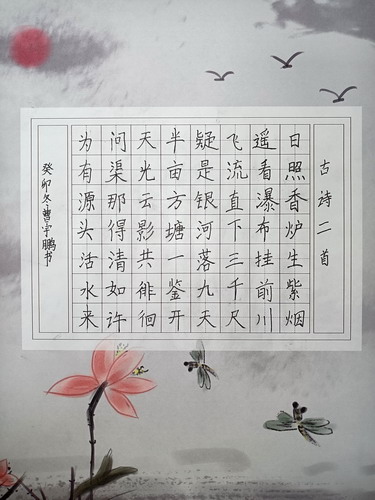 古诗二首
日照香炉生紫烟
遥看瀑布挂前川
飞流直下三千尺
疑是银河落九天
半亩方塘一鉴开
天光云影共徘徊
问渠那得清如许
为有源头活水来
癸卯冬曹宇鹏书